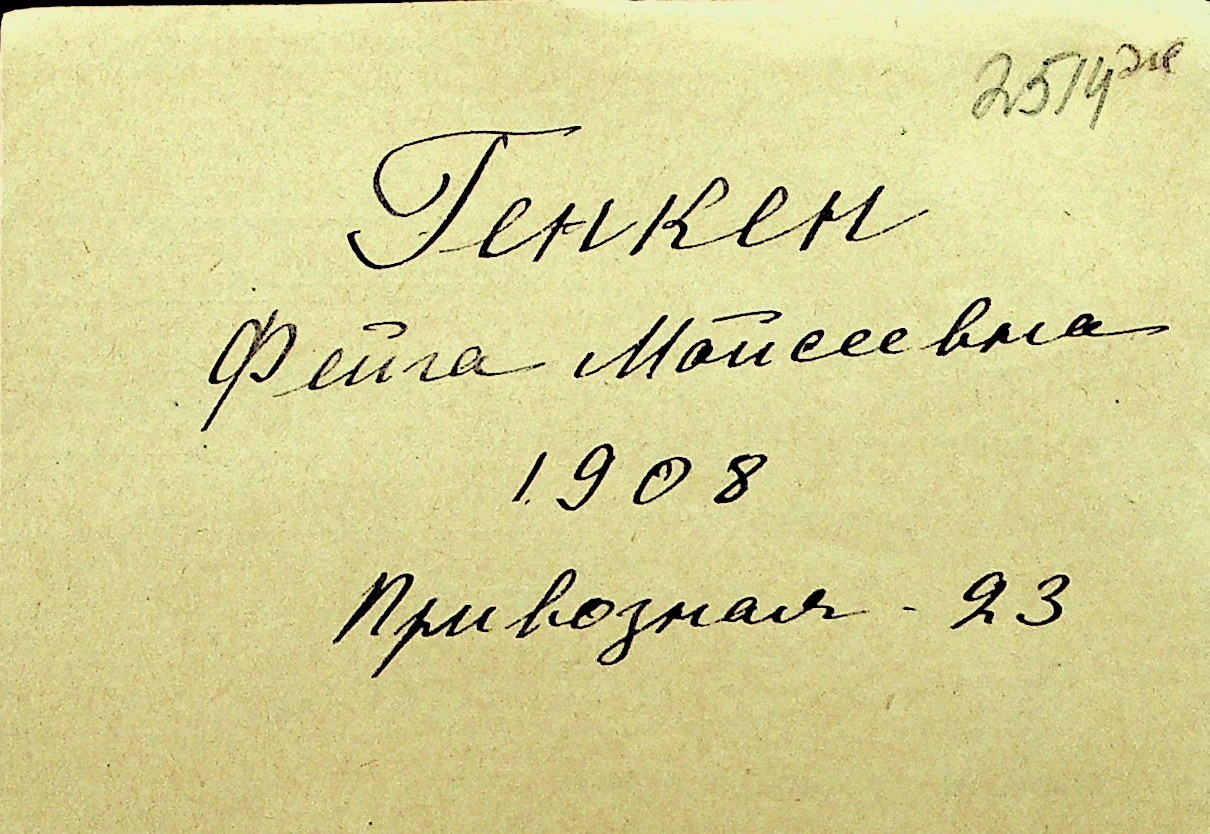 2514
Генкен
Фейга Мойсеевна
1908
Привозная - 23